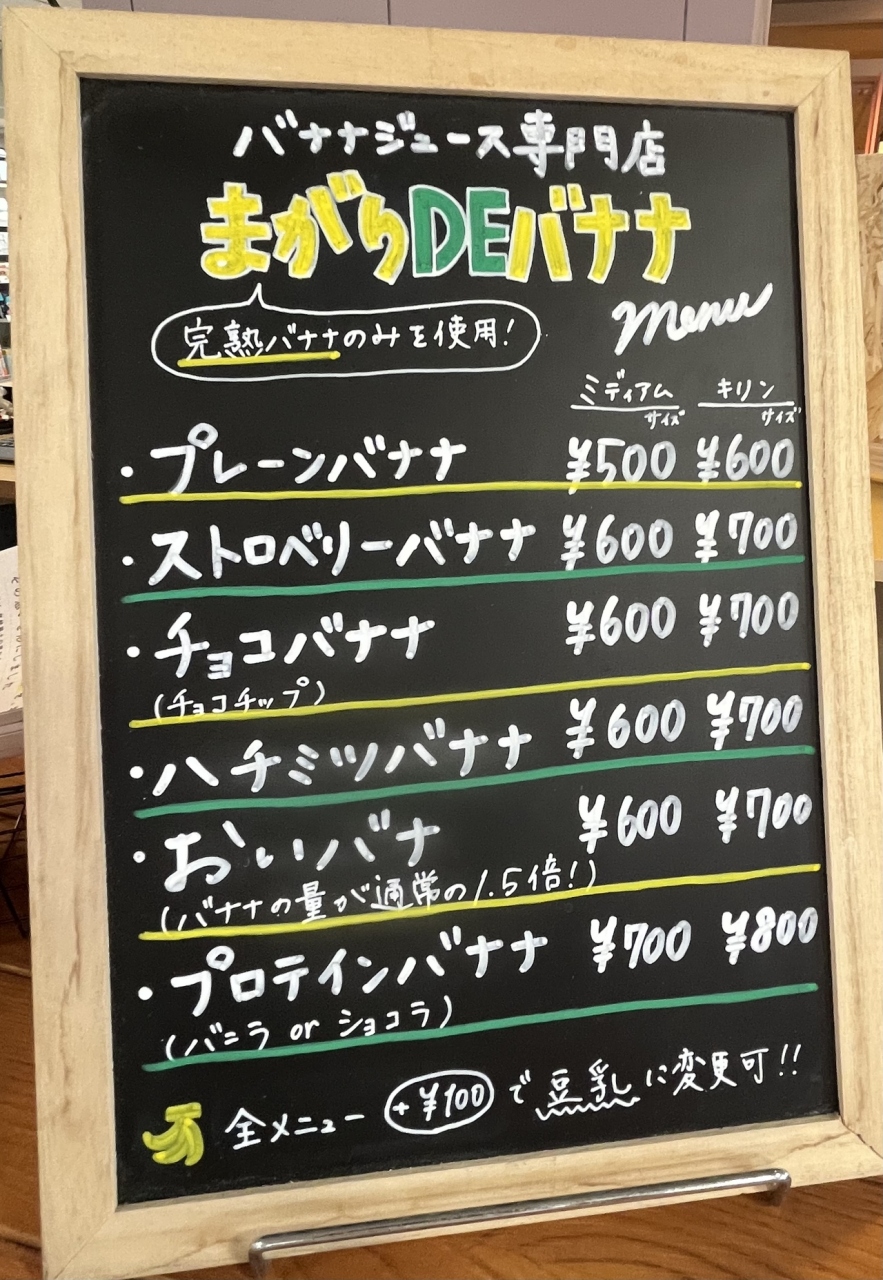 バナナジュース専門店
まがりDEバナナ
完熟バナナのみを使用!
Menu
ミディアムサイズ キリンサイズ
・プレーンバナナ ¥500 ¥600
・ストロベリーバナナ ¥600 ¥700
・チョコバナナ ¥600 ¥700
(チョコチップ)
・ハチミツバナナ ¥600 ¥700
・おいバナ ¥600 ¥700
(バナナの量が通常の1.5倍!)
・プロテインバナナ ¥700 ¥800
(バニラ or ショコラ)
全メニュー +¥100 で豆乳に変更可!!